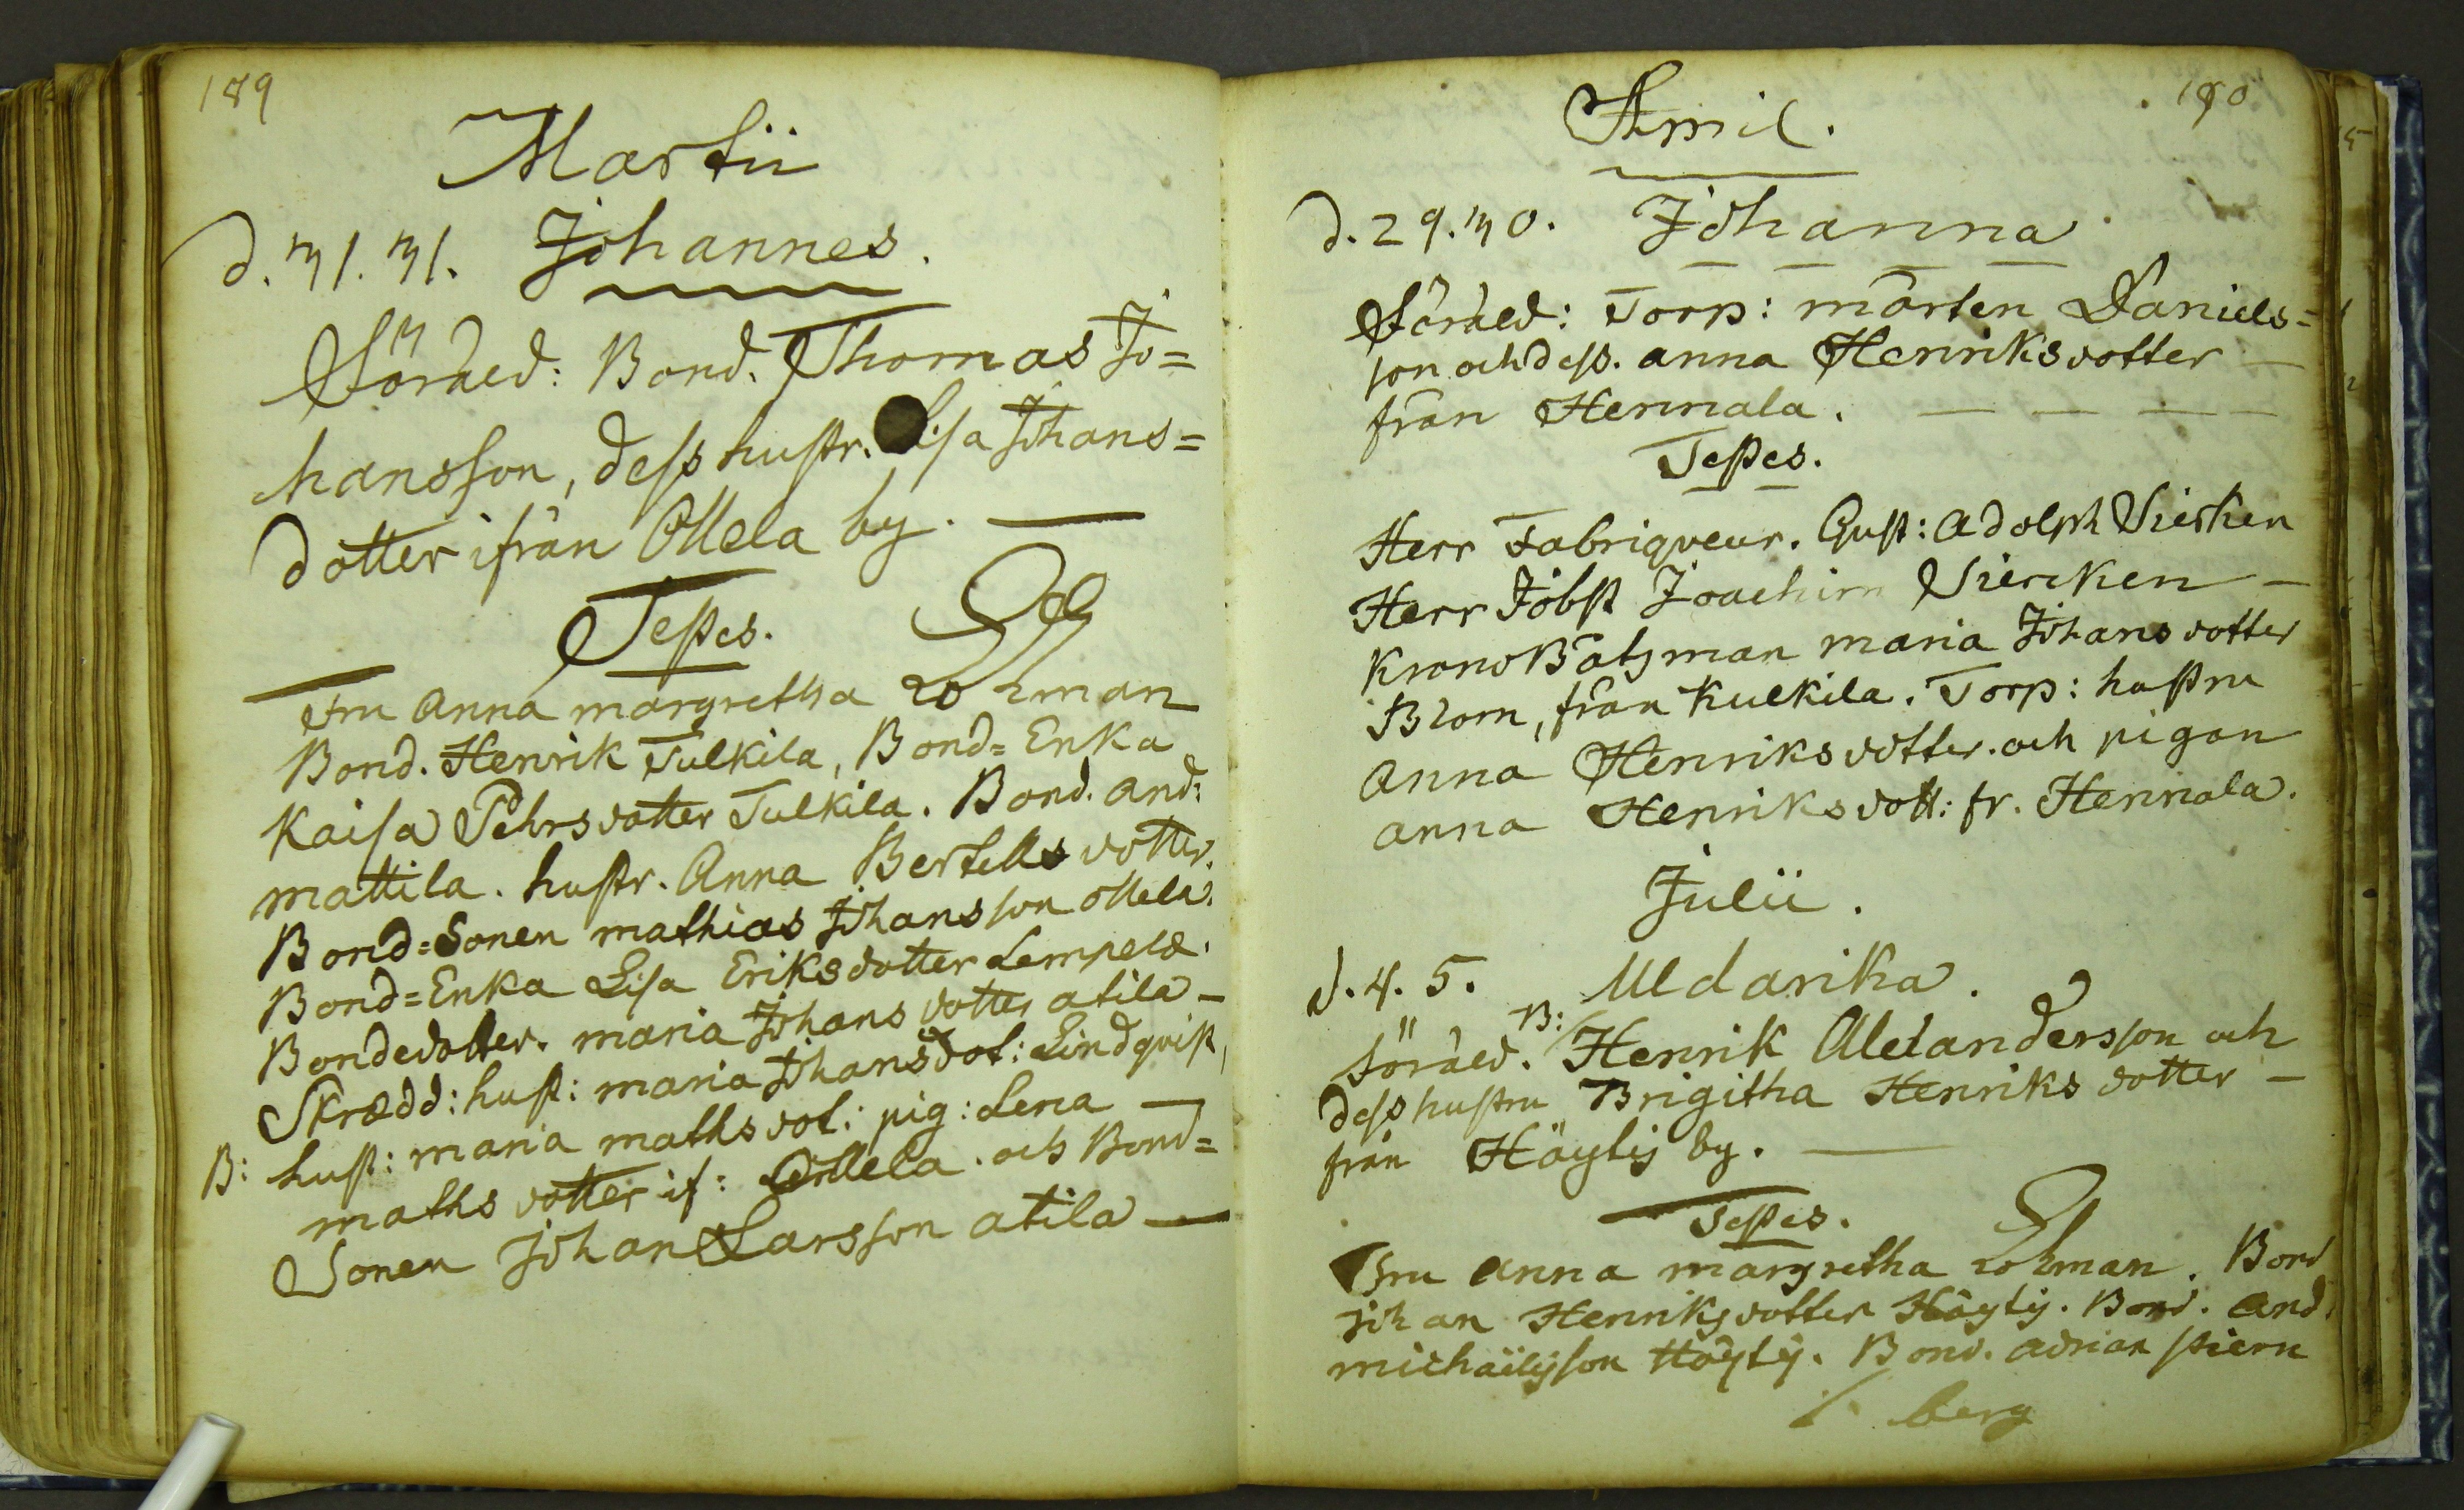 189
Martii
d. 31. 31. Johannes.
Föräld: Bond. Thomas Jo=
hansson, dess hustr. Lisa Johans=
dotter ifrån Ollela by. —
Testes.
Fru Anna margretha Lohman
Bond. Henrik Tulkila, Bond=Enka
Kaisa Pehrsdotter Tulkila. Bond. And:
mattila. hustr. Anna Bertellsdotter.
Bond=Sonen mathias Johansson ollela.
Bond=Enka Lisa Eriksdotter Lempelä.
Bondedotter. maria Johansdotter atila —
Skrædd: hust: maria Johansdot: Lindqvist,
B: hust: maria mathsdot: pig: Lena —
mathsdotter if: Ollela och Bond=
Sonen Johan Larsson atila —
190
April.
d. 29. 30. Johanna
Föräld: Torp: mårten Daniels=
son och dess. anna Henriksdotter —
från Hennala. — — — —
Testes.
Herr Fabriqveur. Gust: Adolph Siercken
Herr Jobst Joachim Siercken —
Krono Båtzman maria Johansdotter
Blom, från Kulkila. Torp: hustru
Anna Henriksdotter. och pigan
anna Henriksdott: fr. Hennala.
Julii.
d. 4. 5. Uldarika.
Föräld. B: Henrik Alexandersson och
dess hustru Brigitha Henriksdotter —
från Häytij by. —
Testes.
Fru Anna margretha Lohman. Bond
Johan Henriksdotter Häytij. Bond. And.
michaëlsson Häytij. Bond. Adrian stiern
berg